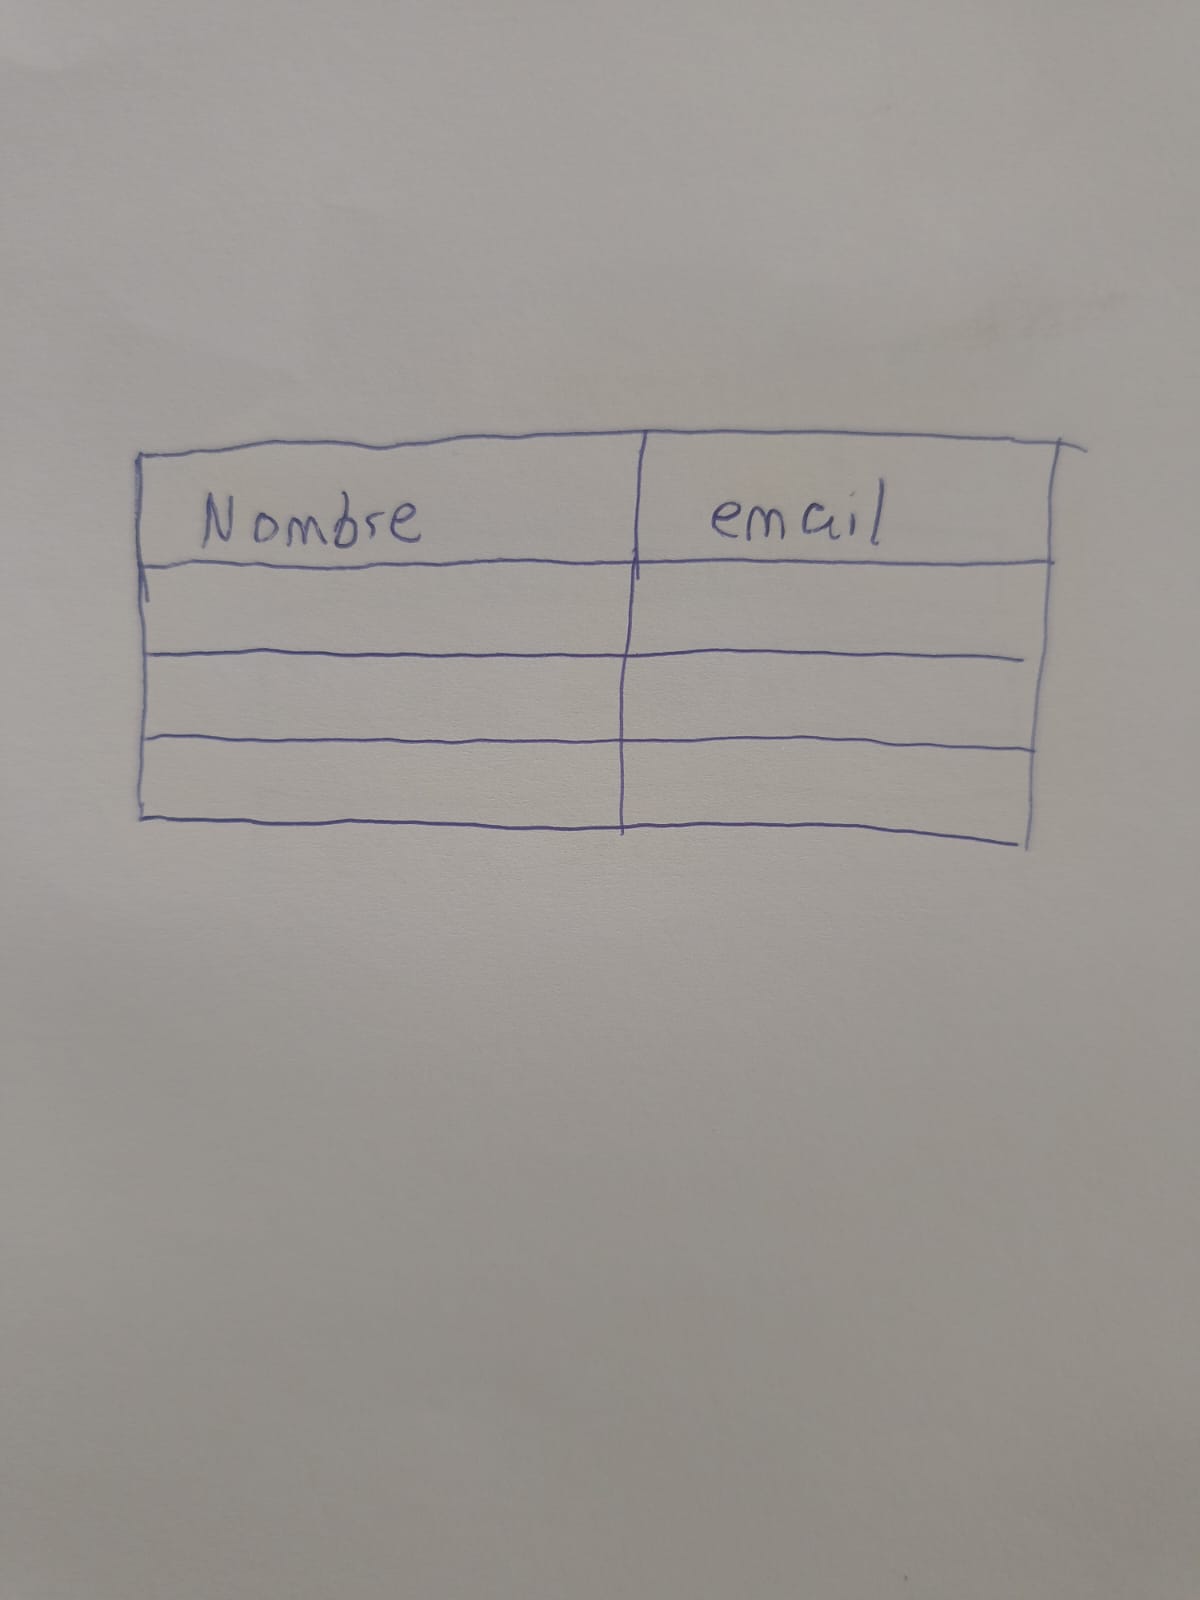 Nombre email